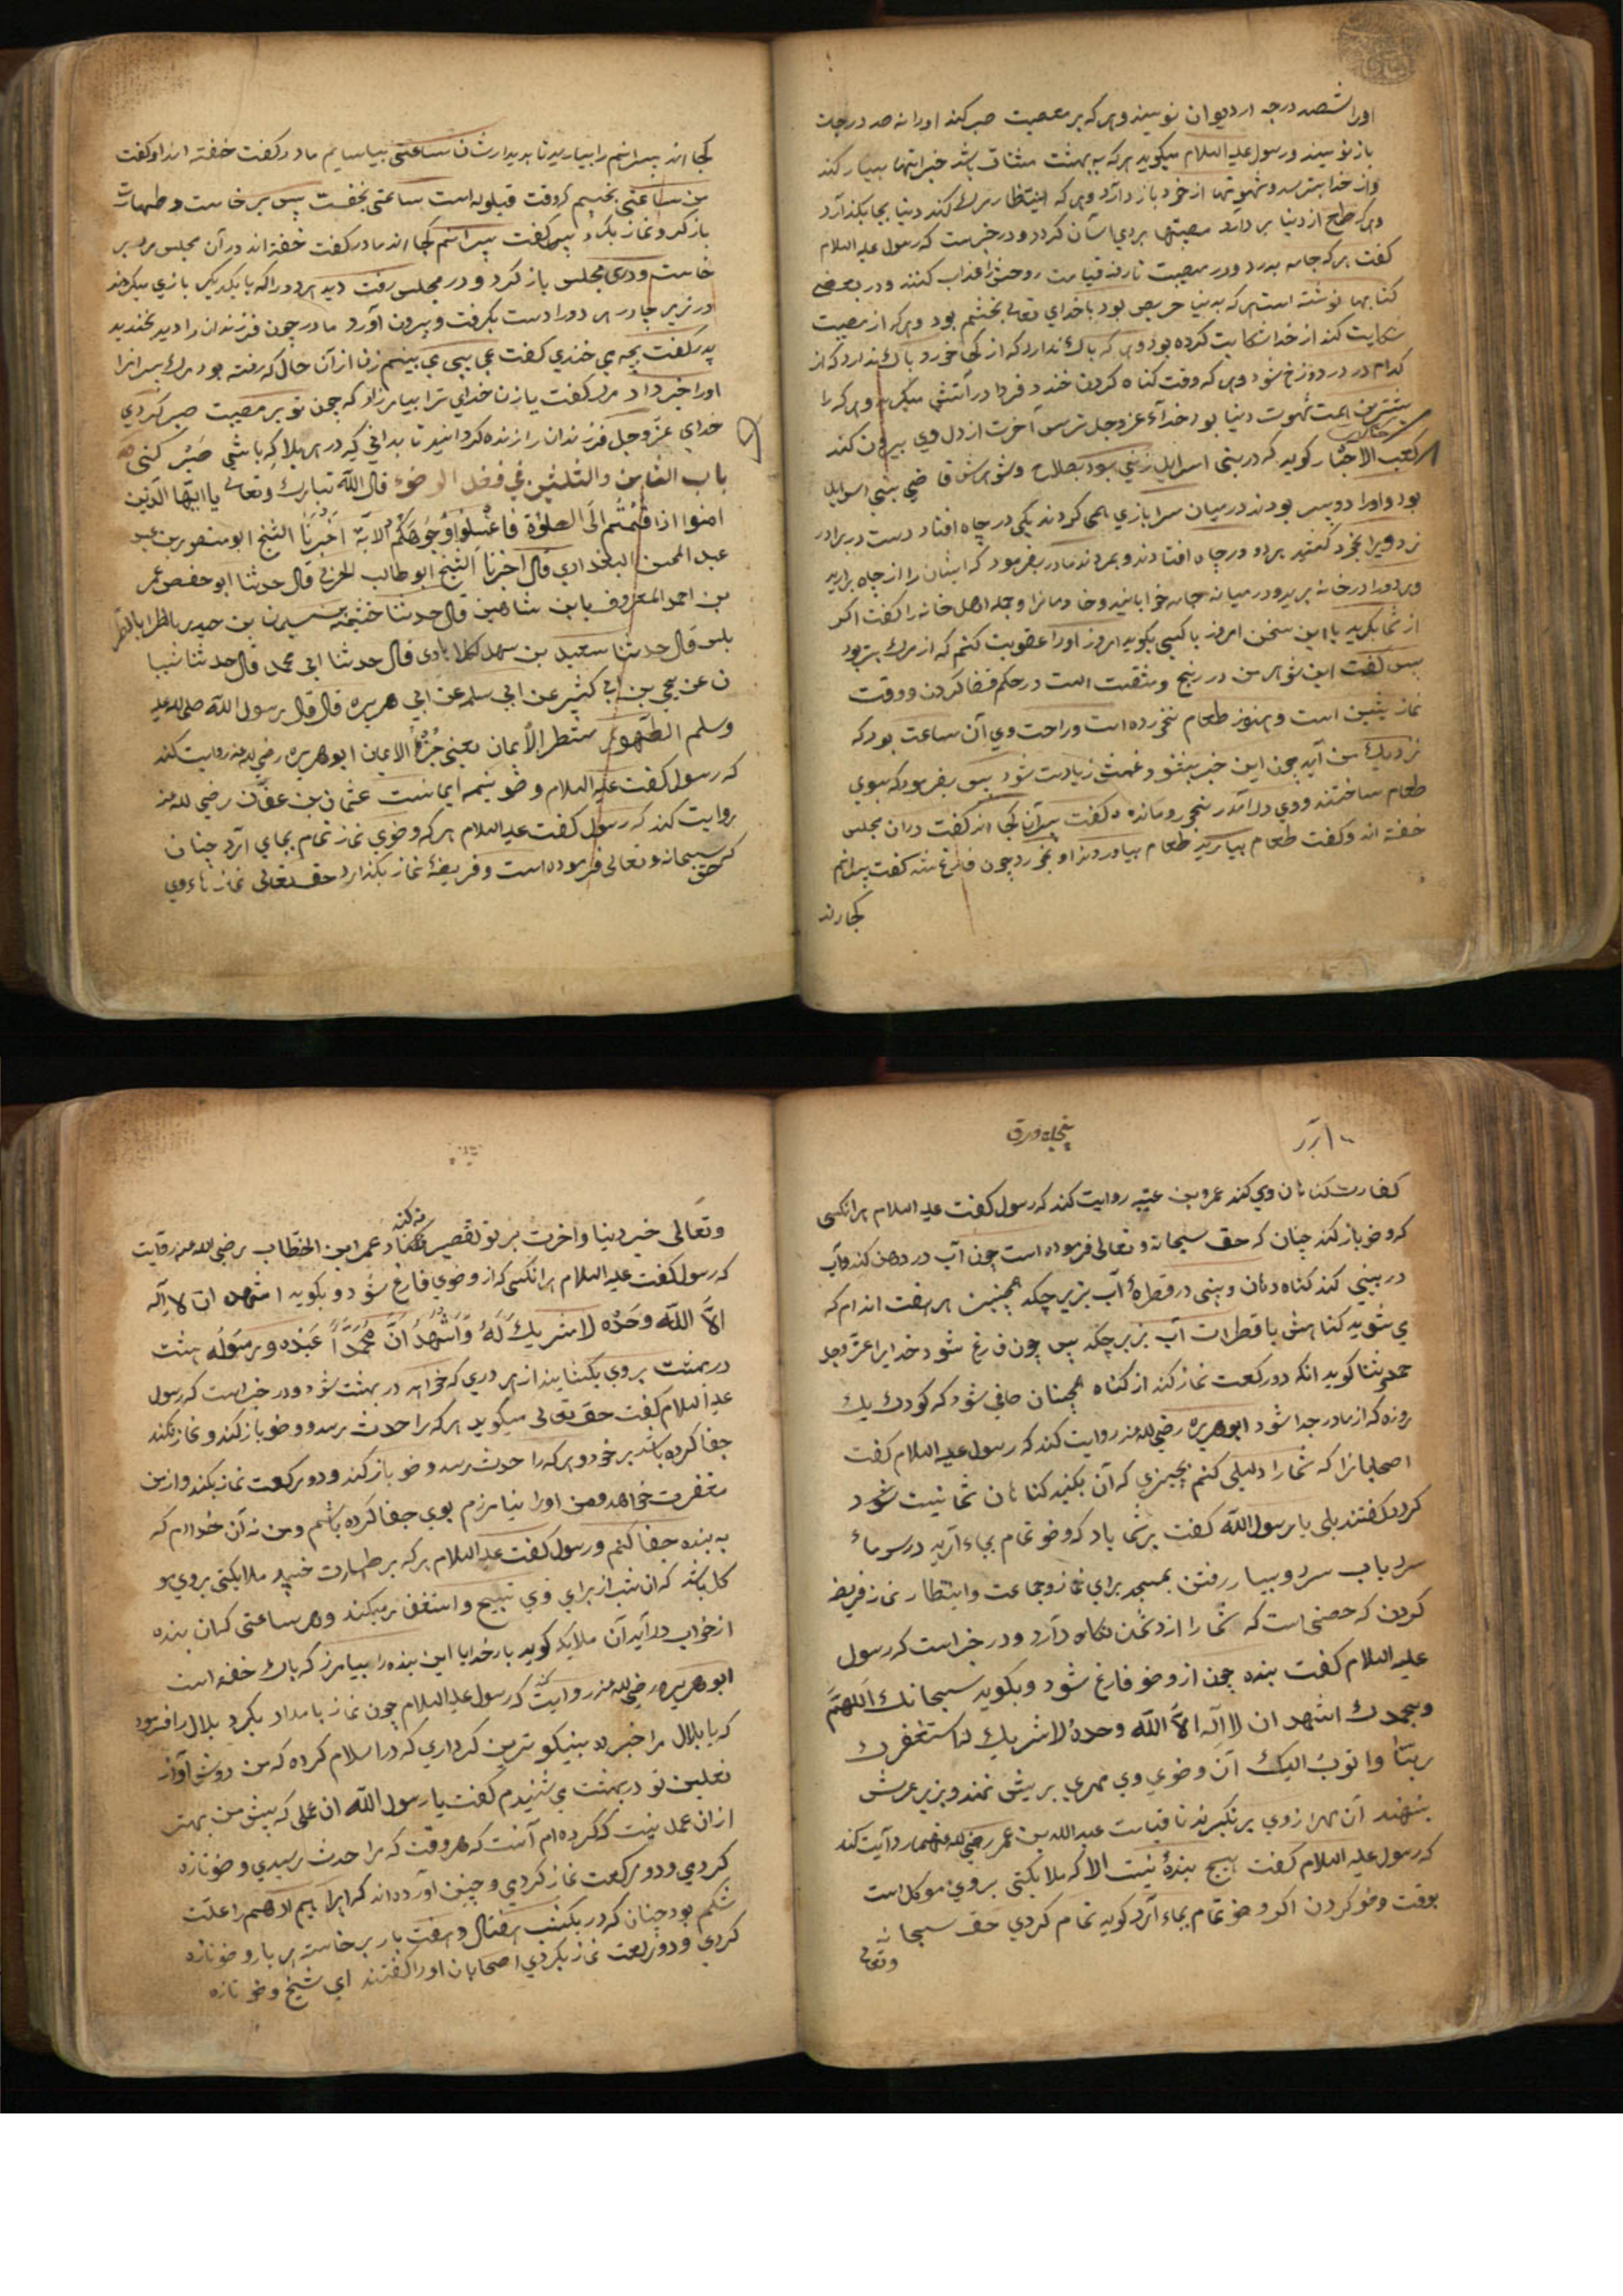 اورا شصد درجه در دیوان نویسند و هر که بر معصیت صبر کند او را نه صد درجات
باز نویسند و رسول علیه السلام میگوید هر که به بهشت مشتاق باشد خیراتها بسیار کند
و از خدا بترسد و شهوتها از خود باز دارد و هر که انتظار مرگ کند دنیا بجا بگذارد
و هر که طمع از دنیا بر دارد مصیبتها بر وی آسان گردد و در خبرست که رسول علیه السلام
گفت هر که جامه بدرد و در مصیبت تا روز قیامت روحش را عذاب کنند و در بعضی
کتابها نوشته است هر که بدنیا حریص بود با خدای تعالی بخشم بود و هر که از مصیبت
شکایت کند از خدا شکایت کرده بود و هر که باک ندارد که از کجا خورد باک ندارد که از
کدام در در دوزخ شود و هر که وقت گناه کردن خندد فردا در آتش میگرید و هر که را
بیشترین همت شهوت دنیا بود خدای عز و جل ترس آخرت از دل وی بیرون کند
کعب الاحبار گوید که در بنی اسرائیل زنی بود بصلاح و شوهرش قاضی بنی اسرائیل
بود و او را دو پسر بودند در میان سرا بازی همی کردند یکی در چاه افتاد دست در برادر
زد ویرا بخود کشید هر دو در چاه افتادند و بمردند مادر بفرمود که ایشان را از چاه برارید
و هر دو را در خانه برید و در میانه جامه خوابانید و خادمانرا و جمله اهل خانه را گفت اگر
از شما بگرید یا این سخن امروز با کسی بگوید امروز او را عقوبت کنم که از مرگ بتر بود
پس گفت این شوهر من در رنج و مشقت است در حکم قضا کردن و وقت
نماز پیشین است و هنوز طعام نخورده است و راحت وی آن ساعت بود که
نزدیک من آید چون این خبر بشنود غمش زیادت شود پس بفرمود که بسوی
طعام ساختند و وی در آمد گفت پسرانم کجا اند گفت در آن مجلس
خفته اند و گفت طعام بیارید طعام بیاوردند او بخورد چون فارغ شد گفت پسرانم
کجا اند
کجا اند پسرانم را بیارید تا بدیدارشان ساعتی بیاسایم مادر گفت خفته اند او گفت
من ساعتی بخسبم که وقت قیلوله است ساعتی بخفت پس برخاست و طهارت
باز کرد و نماز بکرد پس گفت پسرانم کجا اند مادر گفت خفته اند در آن مجلس مرد بر
خاست و در مجلس باز کرد و در مجلس رفت دید هر دو را که با یکدیگر بازی میکردند
در زیر چادر هر دو را دست بگرفت و بیرون آورد مادر چون فرزندان را دید بخندید
پدر گفت بچه می خندی گفت عجایبی می بینم زن از آن حال که رفته بود مرگ پسرانرا
او را خبر داد مرد گفت یا زن خدای ترا بیامرزاد که چون تو بر مصیبت صبر کردی
خدای عز و جل فرزندان را زنده گردانید تا بدانی که در هر بلا که باشی صبر کنی
باب الثامن والثلثون في فضل الوضوء قال الله تبارك وتعالى يا ايها الذين
امنوا اذا قمتم الى الصلوة فاغسلوا وجوهكم الاية اخبرنا الشيخ ابو منصور بن عبد
عبد المحسن البغدادي قال اخبرنا الشيخ ابو طالب قال حدثنا ابو حفص عمر
بن احمد المعروف بابن شاهين قال حدثنا خثيمة بن سليمان بن حيدر
قال حدثنا سعيد بن سهل قال حدثنا ابي محمد قال حدثنا شيبا
ن عن يحيى بن ابي كثير عن ابي سلمه عن ابي هريره قال قال رسول الله صلى الله عليه
وسلم الطهور شطر الايمان يعنى جزؤ الايمان ابو هريره رضي الله عنه روایت کند
که رسول گفت علیه السلام وضو نیمه ایمانست عثمان بن عفان رضي الله عنه
روایت کند که رسول گفت علیه السلام هر که وضوی نماز تمام بجای آرد چنان
که حق سبحانه و تعالی فرموده است و فریضۀ نماز بگذارد حق تعالی نماز
پنجاه ورق
کفارت گناهان وی کند عمرو بن عتبه روایت کند که رسول گفت علیه السلام هر آنکسی
که وضو باز کند چنان که حق سبحانه و تعالی فرموده است چون آب در دهن کند و آب
در بینی کند گناه دهان و بینی در قطرهٔ آب بزیر چکد همچنین هر هفت اندام که
می شوید گناهش با قطرات آب بزیر چکد پس چون فارغ شود خدایرا عز و جل
حمد و ثنا گوید آنکه دو رکعت نماز کند از گناه همچنان صافی شود که کودک یک
روزه که از مادر جدا شود ابو هریره رضی الله عنه روایت کند که رسول علیه السلام گفت
اصحابانرا که شما را دلیلی کنم بچیزی که آن بکنید گناهان شما نیست شود
گفتند بلی یا رسول الله گفت بر شما باد که وضو تمام بجاء آرید در سرماء
سرد بآب سرد و بسیار رفتن بمسجد برای نماز و جماعت و انتظار نماز فریضه
کردن که حصنی است که شما را از دشمن نگاه دارد و در خبر است که رسول
علیه السلام گفت بنده چون از وضو فارغ شود و بگوید سبحانک اللهم
وبحمدک اشهد ان لا اله الا الله وحدهٔ لا شریک لک استغفرک
ربنا واتوب الیک آن وضوی وی مهری بر پیش نهند و بزیر عرش
بنهند آن مهر از وی بر نگیرند تا قیامت عبد الله بن عمر رضی الله عنهما روایت کند
که رسول علیه السلام گفت هیچ بندهٔ نیست الا که ملایکتی بر وی موکل است
بوقت وضو کردن اگر وضو تمام بجاء آرد گوید تمام کردی حق سبحانه
وتعالی
وتعالی خیر دنیا و آخرت بر تو تقصیر نکناد عمر ابن الخطاب رضی الله عنه روایت کند
که رسول گفت علیه السلام هر آنکسی که از وضوی فارغ شود و بگوید اشهد ان لا اله
الا الله وحده لا شریک له واشهد ان محمدا عبده ورسوله هشت
در بهشت بر وی بگشایند از هر دری که خواهد در بهشت شود و در خبر است که رسول
علیه السلام گفت حق تعالی میگوید هر که را حدث برسد و وضو باز کند و نماز نکند
جفا کرده باشد بر خود و هر که را حدث رسد وضو باز کند و دو رکعت نماز بکند و از من
مغفرت خواهد و من او را نیامرزم بوی جفا کرده باشم و من نه آن خدایم که
به بنده جفا کنم و رسول گفت علیه السلام هر که بر طهارت خسپد ملایکتی بر وی مو
کل باشد که آن شب از برای وی تسبیح و استغفار میکند و هر ساعتی که آن بنده
از خواب در آید آن ملایکه گوید بار خدایا این بنده را بیامرز که پاک خفته است
ابو هریره رضی الله عنه روایت کند که رسول علیه السلام چون نماز بامداد بکرد بلال را فرمود
که یا بلال مرا خبر ده بنیکو ترین کرداری که در اسلام کرده که من دوش آواز
نعلین تو در بهشت می شنیدم گفت یا رسول الله آن عملی که پیش من بهتر
از آن عمل نیست که کرده ام آنست که هر وقت که مرا حدث رسیدی وضو تازه
کردی و دو رکعت نماز کردی و چنین آورده اند که ابراهیم ادهم را علت
شکم بود چنان که در یکشب هفتاد و هفت بار برخاست هر بار وضو تازه
کردی و دو رکعت نماز بکردی اصحابان او را گفتند ای شیخ وضو تازه